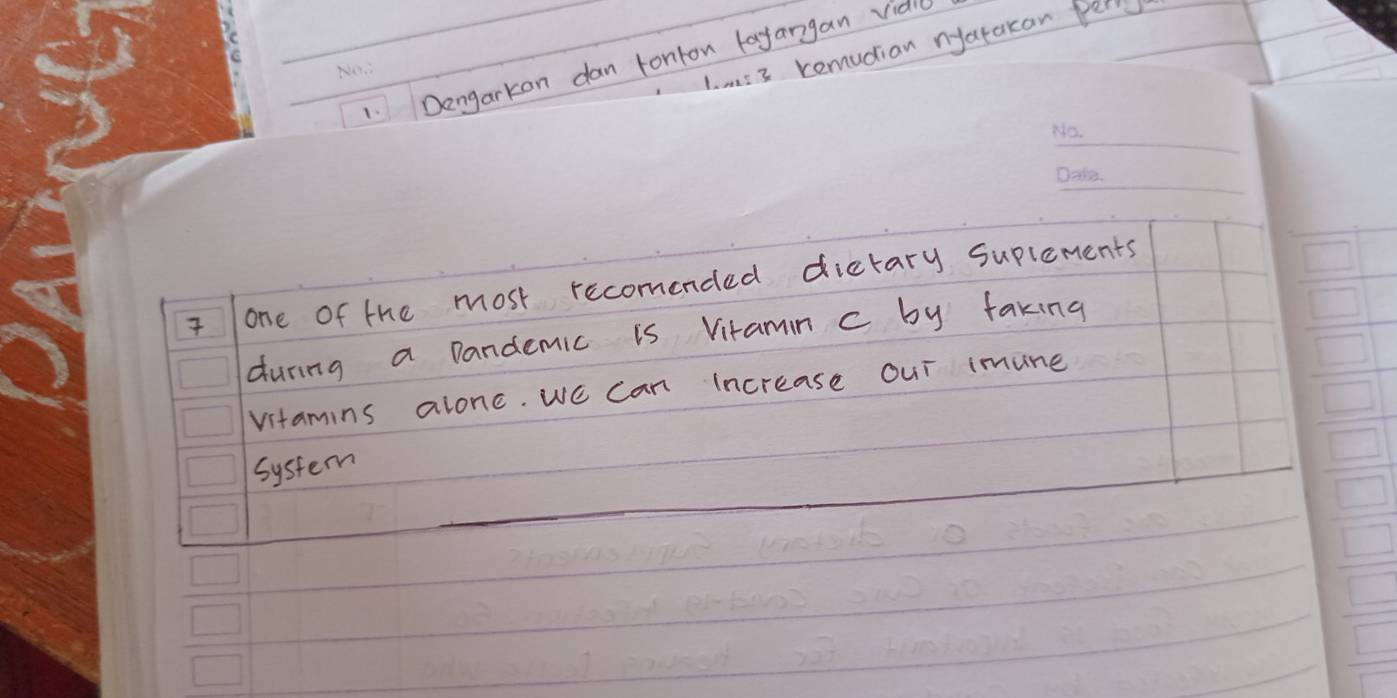 No.:
1. Dengarkan dan tonton tayangan vidio
kemudian nyatakan
No.
Date.
7 One of the most recomended dietary Suplements
during a Pandemic is Vitamin C by taking
vitamins alone. We can increase our imune
System